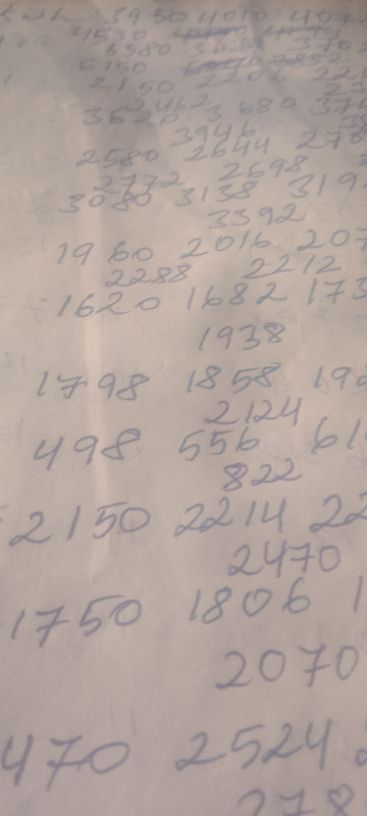 3950 4010 407
4530
3580 3638 370
6150
2150 2206 22
2462
3620 3680 374
3946
2580 2644 270
2772 2698
3080 3138 319
3392
1960 2016 207
2288 2212
1620 1682 173
1938
1798 1858 192
2124
498 556 61
822
2150 2214 22
2470
1750 1806 1
2070
470 2524 2
278